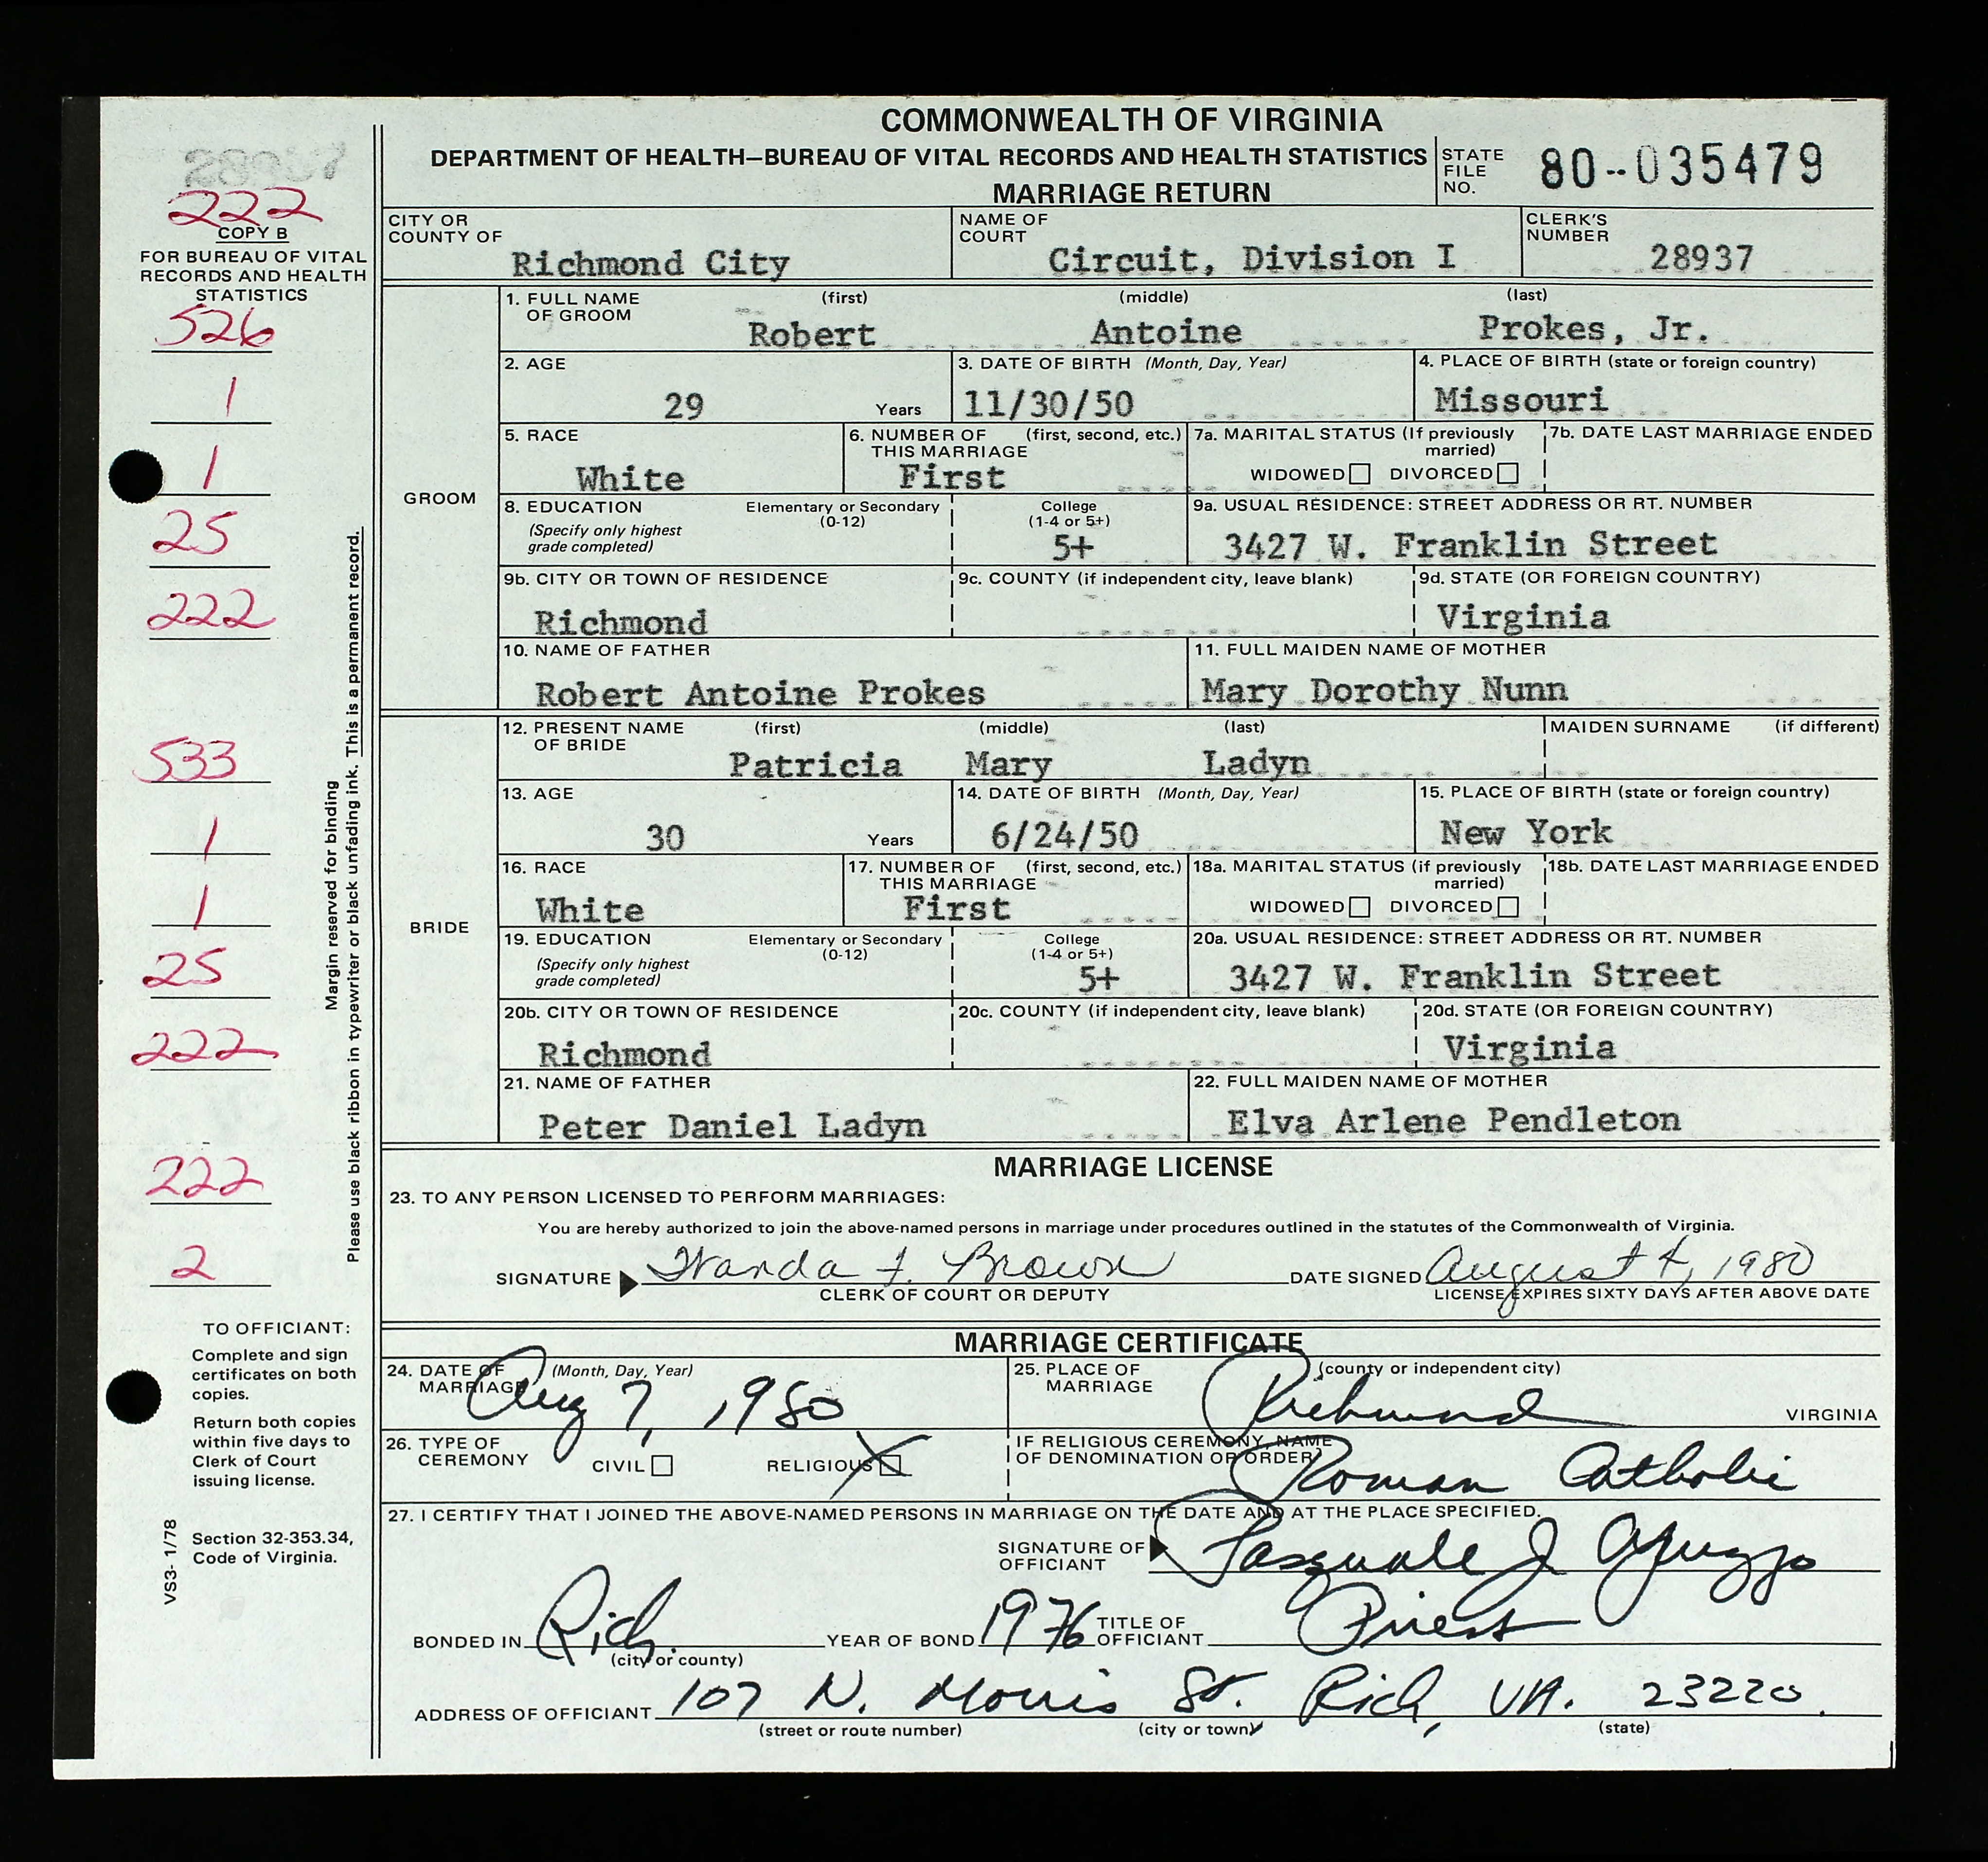 COMMONWEALTH OF VIRGINIA
DEPARTMENT OF HEALTH—BUREAU OF VITAL RECORDS AND HEALTH STATISTICS
MARRIAGE RETURN
STATE FILE NO. 80--035479
28937
222
COPY B
FOR BUREAU OF VITAL
RECORDS AND HEALTH
STATISTICS
526
1
1
25
222
533
1
1
25
222
222
2
Margin reserved for binding
Please use black ribbon in typewriter or black unfading ink. This is a permanent record.
TO OFFICIANT:
Complete and sign
certificates on both
copies.
Return both copies
within five days to
Clerk of Court
issuing license.
Section 32-353.34,
Code of Virginia.
VS3- 1/78
CITY OR COUNTY OF Richmond City
NAME OF COURT Circuit, Division I
CLERK'S NUMBER 28937
GROOM
1. FULL NAME OF GROOM (first) (middle) (last)
Robert Antoine Prokes, Jr.
2. AGE 29 Years
3. DATE OF BIRTH (Month, Day, Year) 11/30/50
4. PLACE OF BIRTH (state or foreign country) Missouri
5. RACE White
6. NUMBER OF THIS MARRIAGE (first, second, etc.) First
7a. MARITAL STATUS (If previously married) WIDOWED DIVORCED
7b. DATE LAST MARRIAGE ENDED
8. EDUCATION (Specify only highest grade completed) Elementary or Secondary (0-12) College (1-4 or 5+) 5+
9a. USUAL RESIDENCE: STREET ADDRESS OR RT. NUMBER 3427 W. Franklin Street
9b. CITY OR TOWN OF RESIDENCE Richmond
9c. COUNTY (if independent city, leave blank)
9d. STATE (OR FOREIGN COUNTRY) Virginia
10. NAME OF FATHER Robert Antoine Prokes
11. FULL MAIDEN NAME OF MOTHER Mary Dorothy Nunn
BRIDE
12. PRESENT NAME OF BRIDE (first) (middle) (last) MAIDEN SURNAME (if different)
Patricia Mary Ladyn
13. AGE 30 Years
14. DATE OF BIRTH (Month, Day, Year) 6/24/50
15. PLACE OF BIRTH (state or foreign country) New York
16. RACE White
17. NUMBER OF THIS MARRIAGE (first, second, etc.) First
18a. MARITAL STATUS (if previously married) WIDOWED DIVORCED
18b. DATE LAST MARRIAGE ENDED
19. EDUCATION (Specify only highest grade completed) Elementary or Secondary (0-12) College (1-4 or 5+) 5+
20a. USUAL RESIDENCE: STREET ADDRESS OR RT. NUMBER 3427 W. Franklin Street
20b. CITY OR TOWN OF RESIDENCE Richmond
20c. COUNTY (if independent city, leave blank)
20d. STATE (OR FOREIGN COUNTRY) Virginia
21. NAME OF FATHER Peter Daniel Ladyn
22. FULL MAIDEN NAME OF MOTHER Elva Arlene Pendleton
MARRIAGE LICENSE
23. TO ANY PERSON LICENSED TO PERFORM MARRIAGES:
You are hereby authorized to join the above-named persons in marriage under procedures outlined in the statutes of the Commonwealth of Virginia.
SIGNATURE Wanda F. Brown DATE SIGNED August 4, 1980
CLERK OF COURT OR DEPUTY LICENSE EXPIRES SIXTY DAYS AFTER ABOVE DATE
MARRIAGE CERTIFICATE
24. DATE OF MARRIAGE (Month, Day, Year) Aug 7, 1980
25. PLACE OF MARRIAGE (county or independent city) Richmond VIRGINIA
26. TYPE OF CEREMONY CIVIL RELIGIOUS X
IF RELIGIOUS CEREMONY, NAME OF DENOMINATION OR ORDER) Roman Catholic
27. I CERTIFY THAT I JOINED THE ABOVE-NAMED PERSONS IN MARRIAGE ON THE DATE AND AT THE PLACE SPECIFIED.
SIGNATURE OF OFFICIANT Pasquale J Apuzzo
BONDED IN Rich. YEAR OF BOND 1976 TITLE OF OFFICIANT Priest
(city or county)
ADDRESS OF OFFICIANT 107 N. Morris St. Rich, VA. 23220.
(street or route number) (city or town) (state)